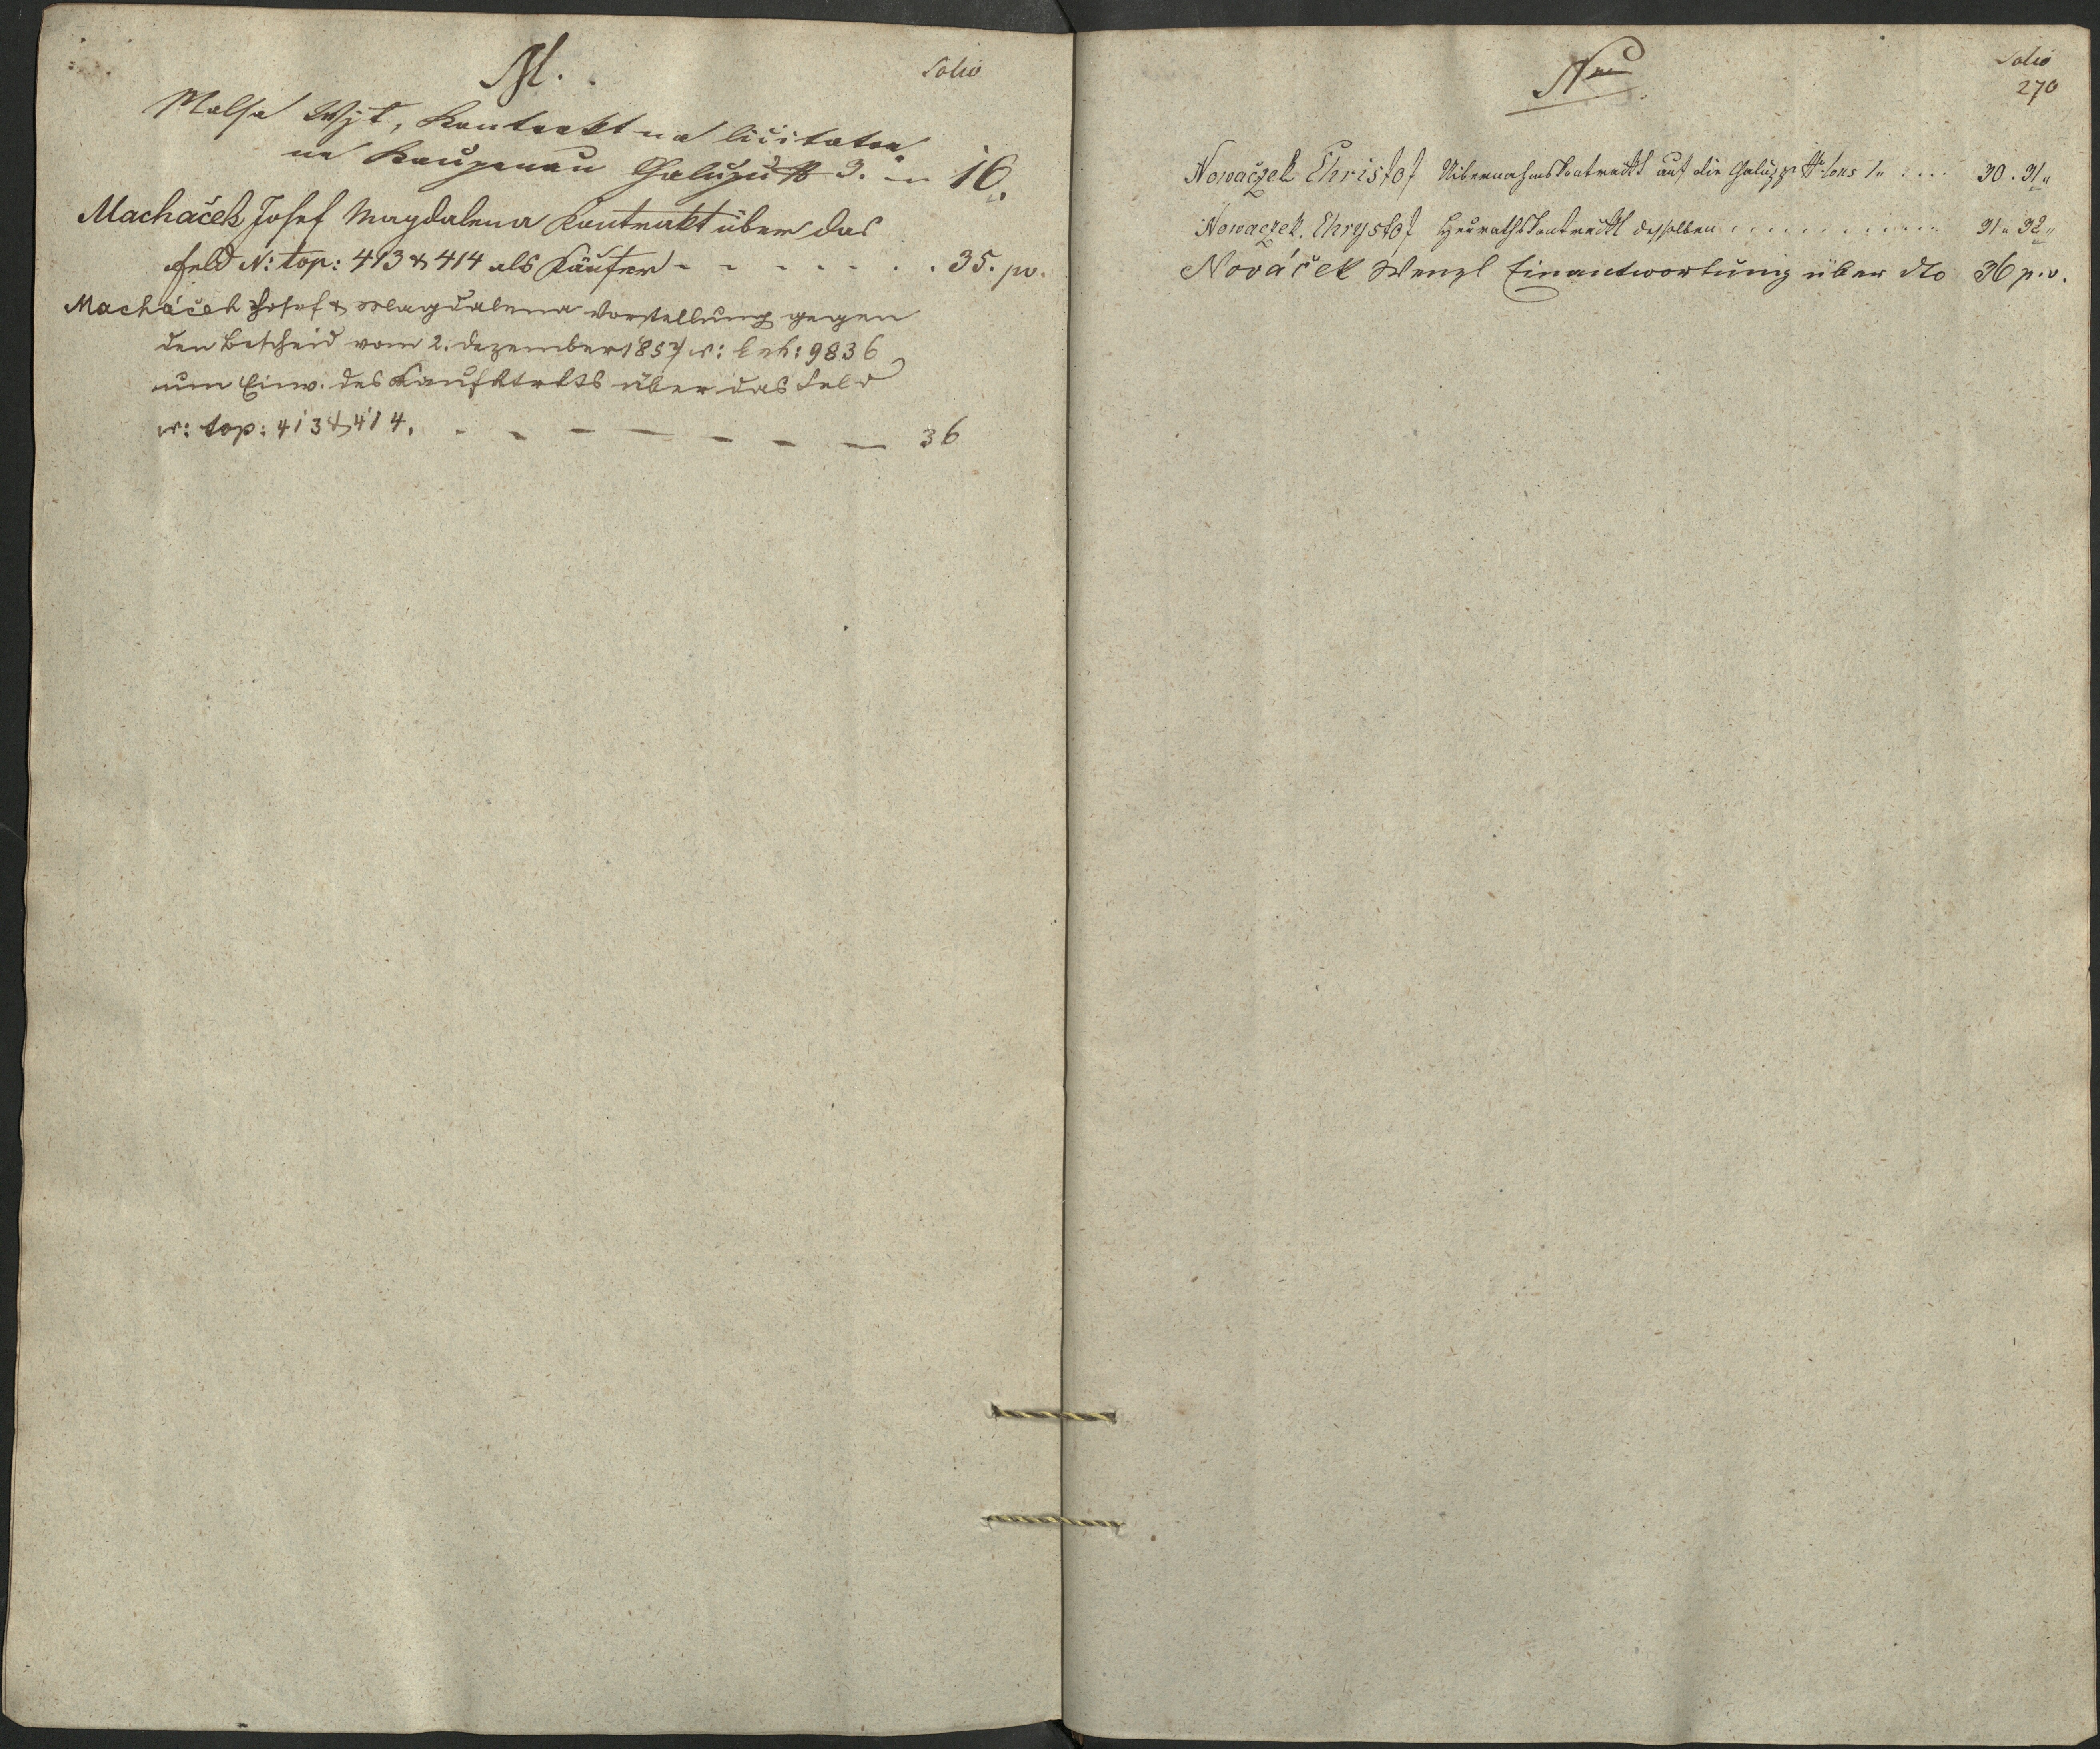 M.
Folio
Malsa Wjt, Kontrakt na licitaton
ne Kaupenau Chalupu N 3. 16.
Macháček Josef Magdalena Kontrakt über das
Feld N: top: 413 & 414 als Käufer - - - - - - . 35. pv.
Macháček Josef & Magdalena Vorstellung gegen
den Bescheid vom 2. Dezember 1857 N: Exh: 9836
um Einv. des Kaufktrkts über das Feld
N: top: 413 & 414. - - - - - - - 36
N
Folio
270
Nowaczek Christof Uibernahmskontrackt auf die Chaluppe N. Cons 1 .... 30. 31
Nowaczek Chrystof Heurathskontrackt desselben .......... 31 u 32
Nováček Wenzl Einantwortung über dto 36 p. v.